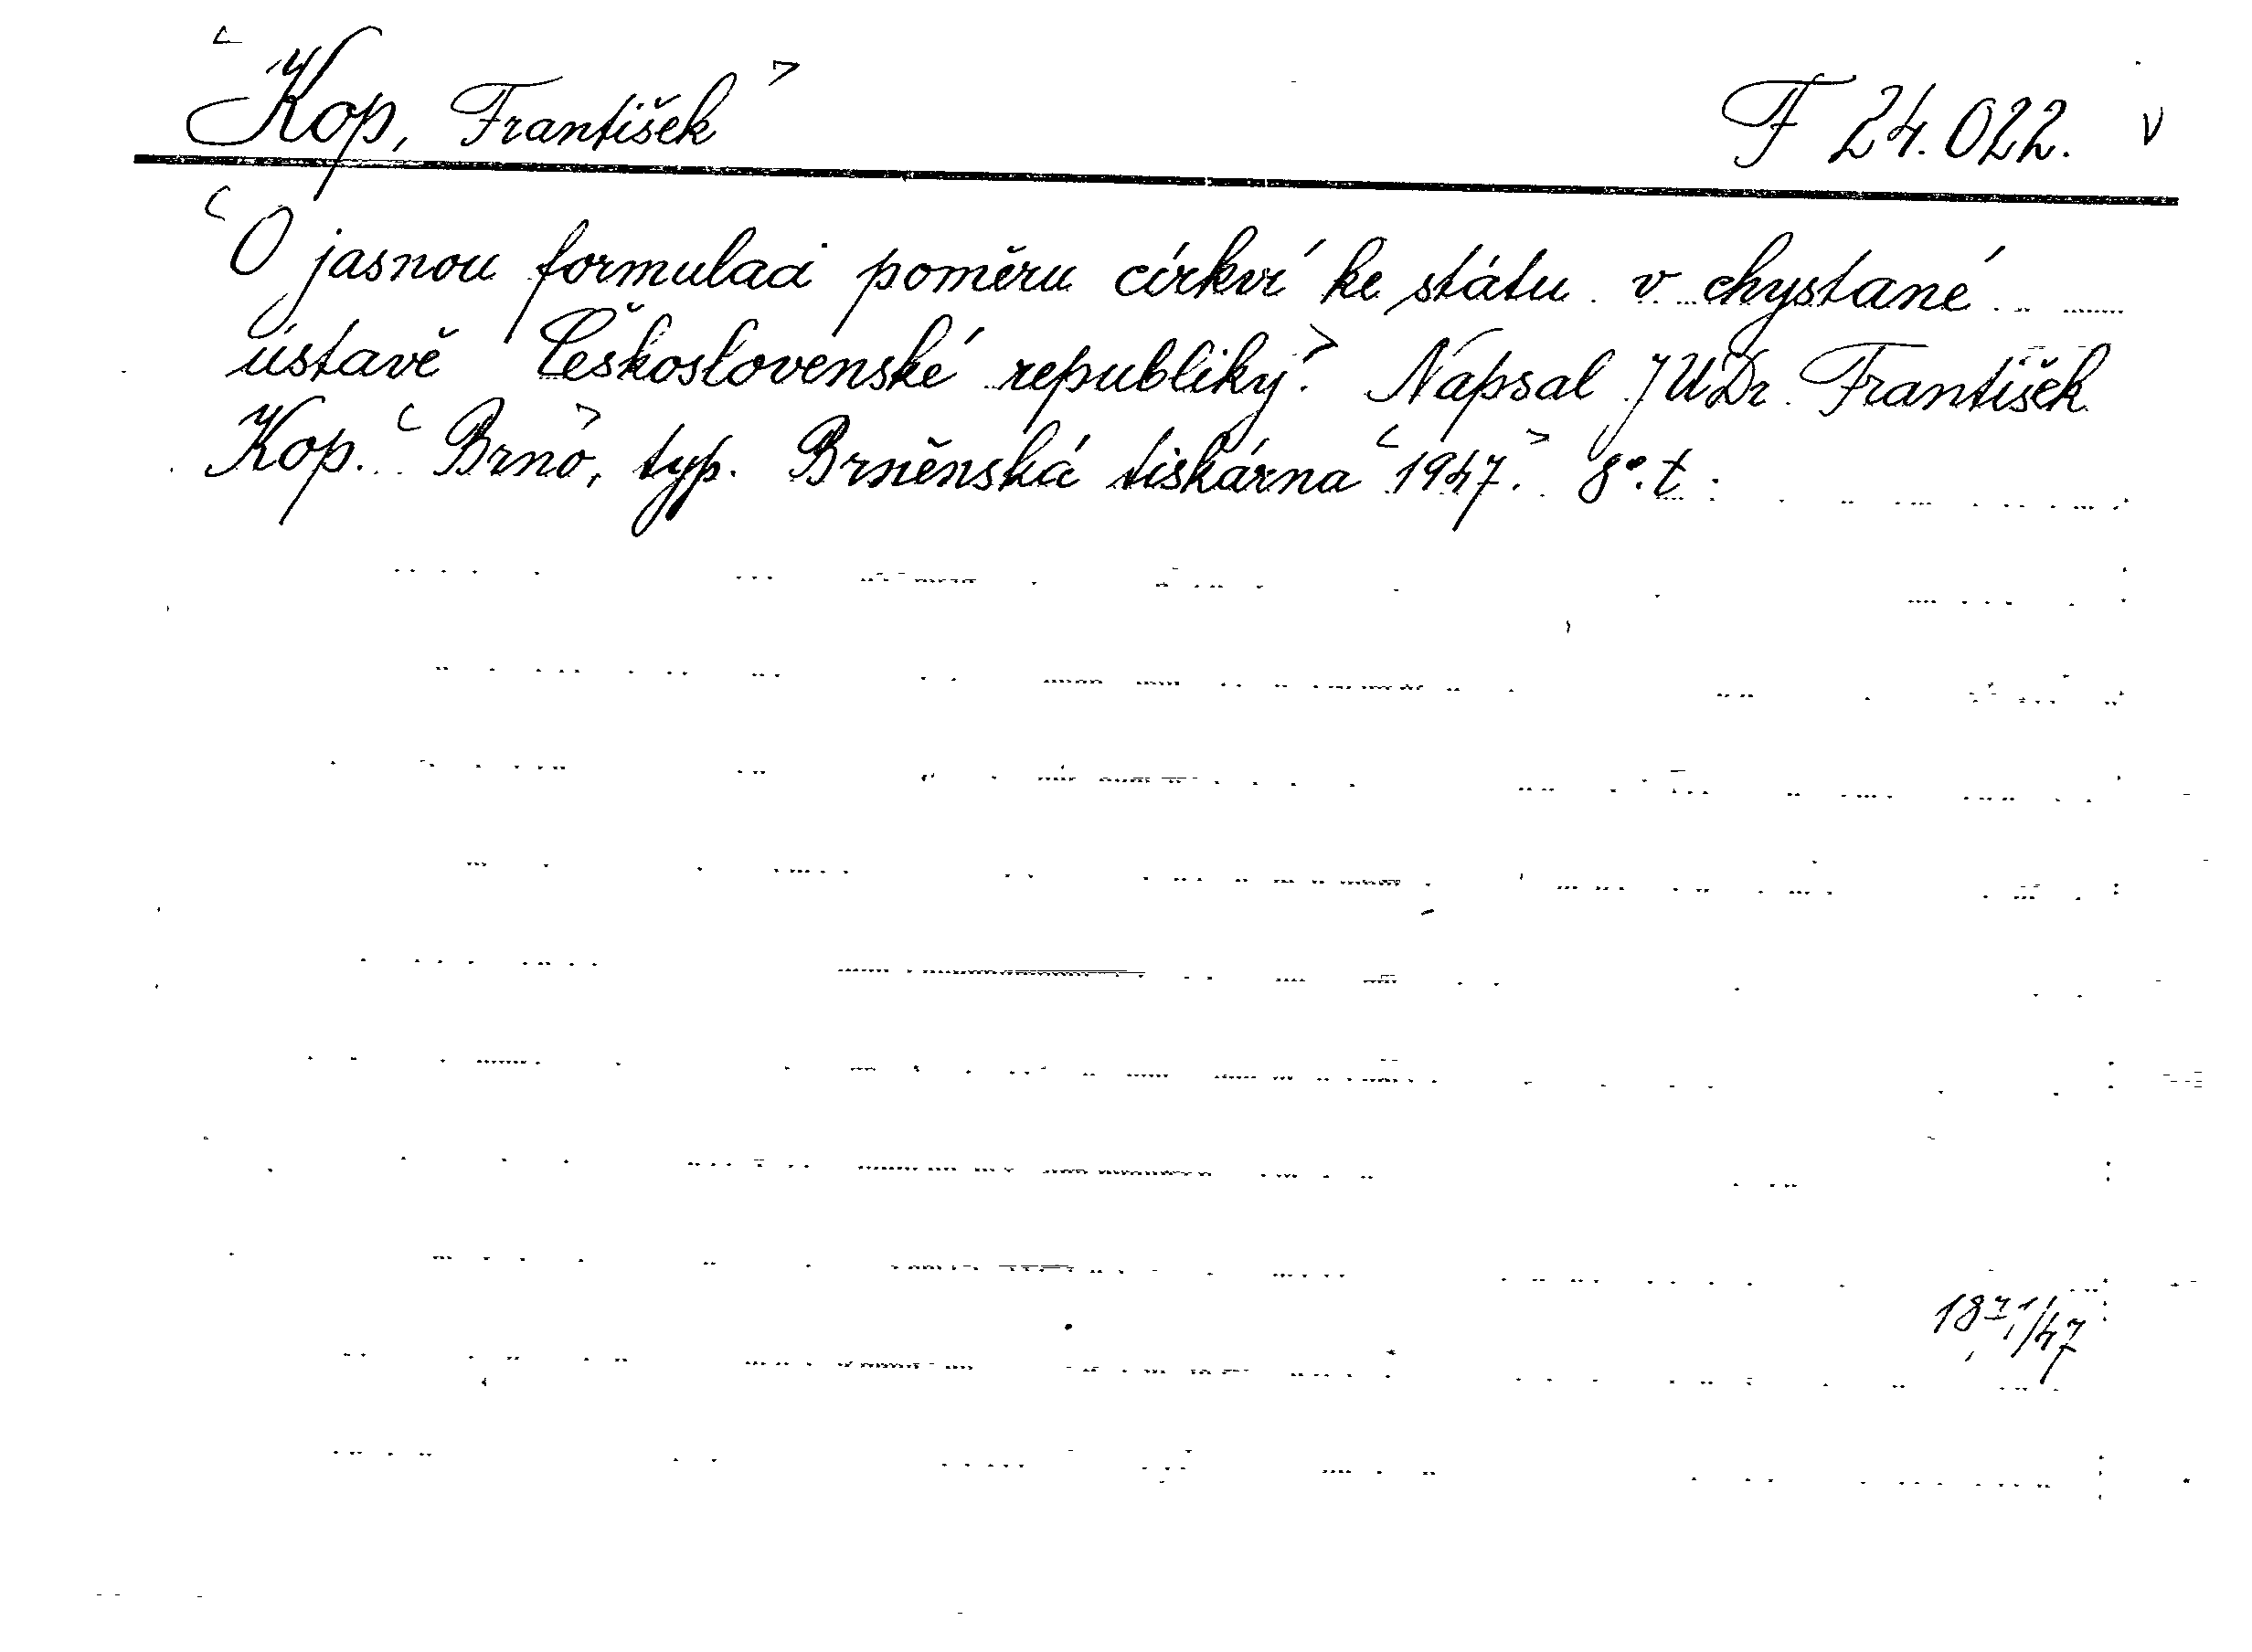 Kop, František F 24.022. v
O jasnou formulaci poměru církví ke státu v chystané
ústavě Československé republiky. Napsal JUDr. František
Kop. Brno, typ. Brněnská tiskárna 1947. 8°. t.